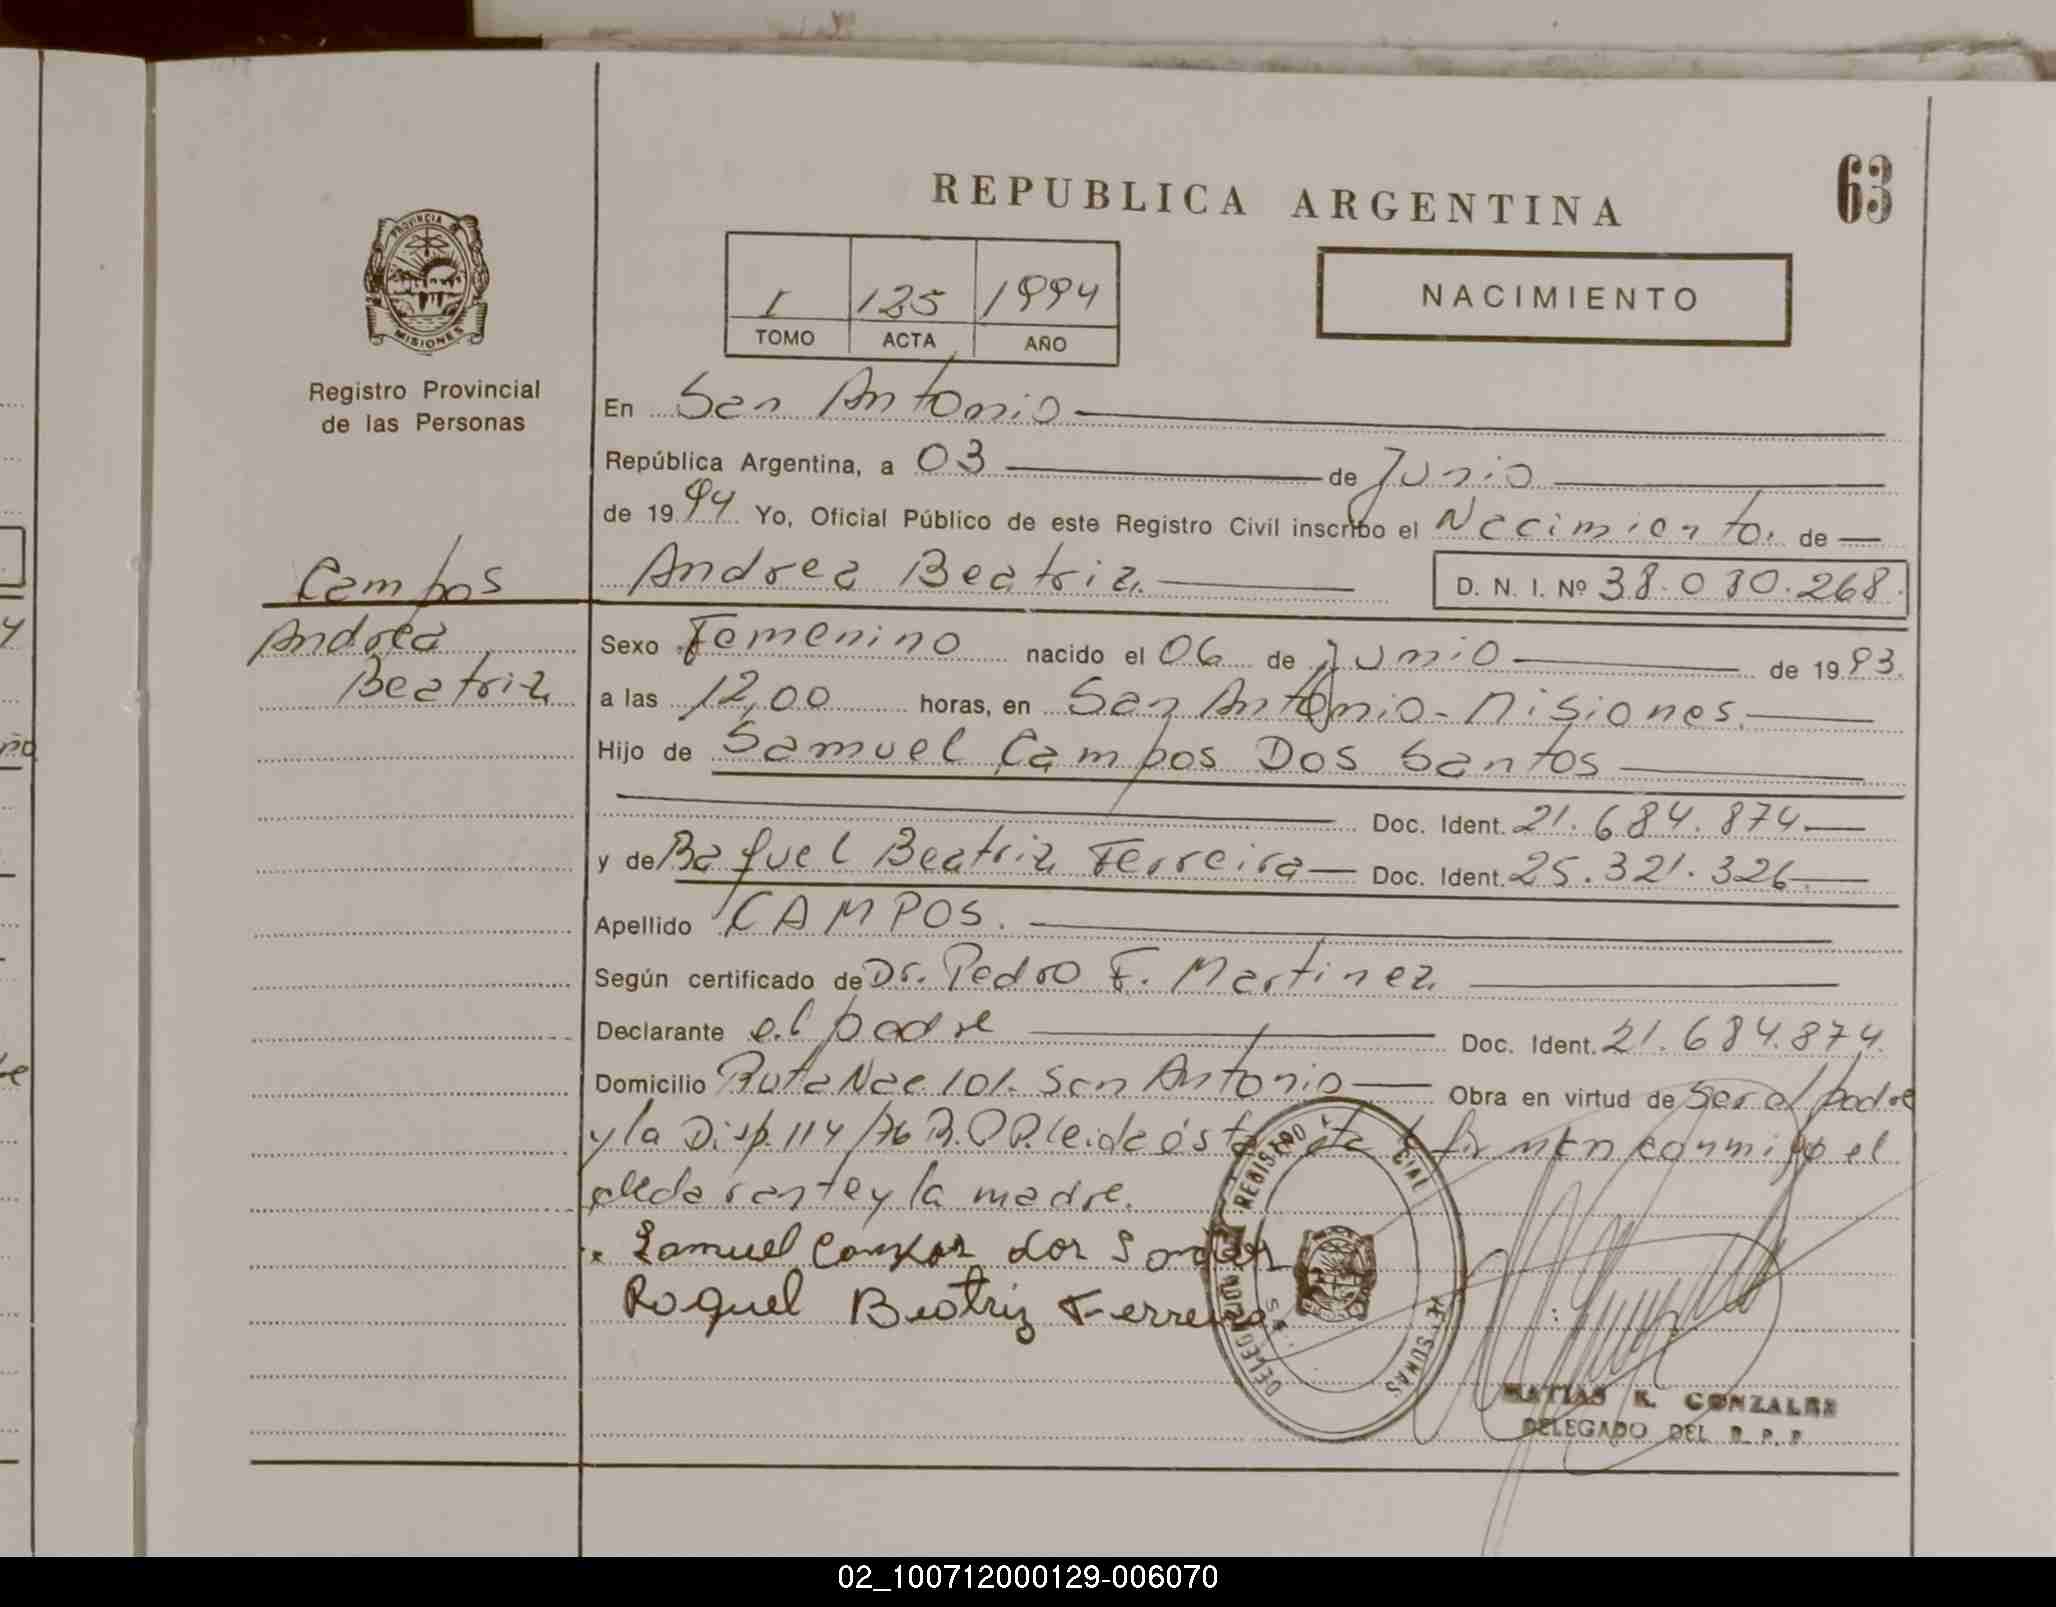 63
REPUBLICA ARGENTINA
PROVINCIA DE
MISIONES
Registro Provincial
de las Personas
I 125 1994
TOMO ACTA AÑO
NACIMIENTO
En San Antonio
República Argentina, a 03 de Junio
de 1994 Yo, Oficial Público de este Registro Civil inscribo el Nacimiento. de
Campos
Andrea Beatriz
D. N. I. Nº 38.030.268.
Andrea
Beatriz
Sexo Femenino nacido el 06 de Junio de 1993.
a las 12,00 horas, en San Antonio - Misiones.
Hijo de Samuel Campos Dos Santos
Doc. Ident. 21.684.874
y de Raquel Beatriz Ferreira Doc. Ident. 25.321.326
Apellido CAMPOS.
Según certificado de Dr. Pedro F. Martinez
Declarante el padre Doc. Ident. 21.684.874
Domicilio Ruta Nac. 101. San Antonio Obra en virtud de ser el padre
y la Disp. 114/76 R.P.P. leida ésta acta firman conmigo el
declarante y la madre.
Samuel Campos dos Santos
Raquel Beatriz Ferreira
MATIAS R. GONZALEZ
DELEGADO DEL R. P. P.
02_100712000129-006070